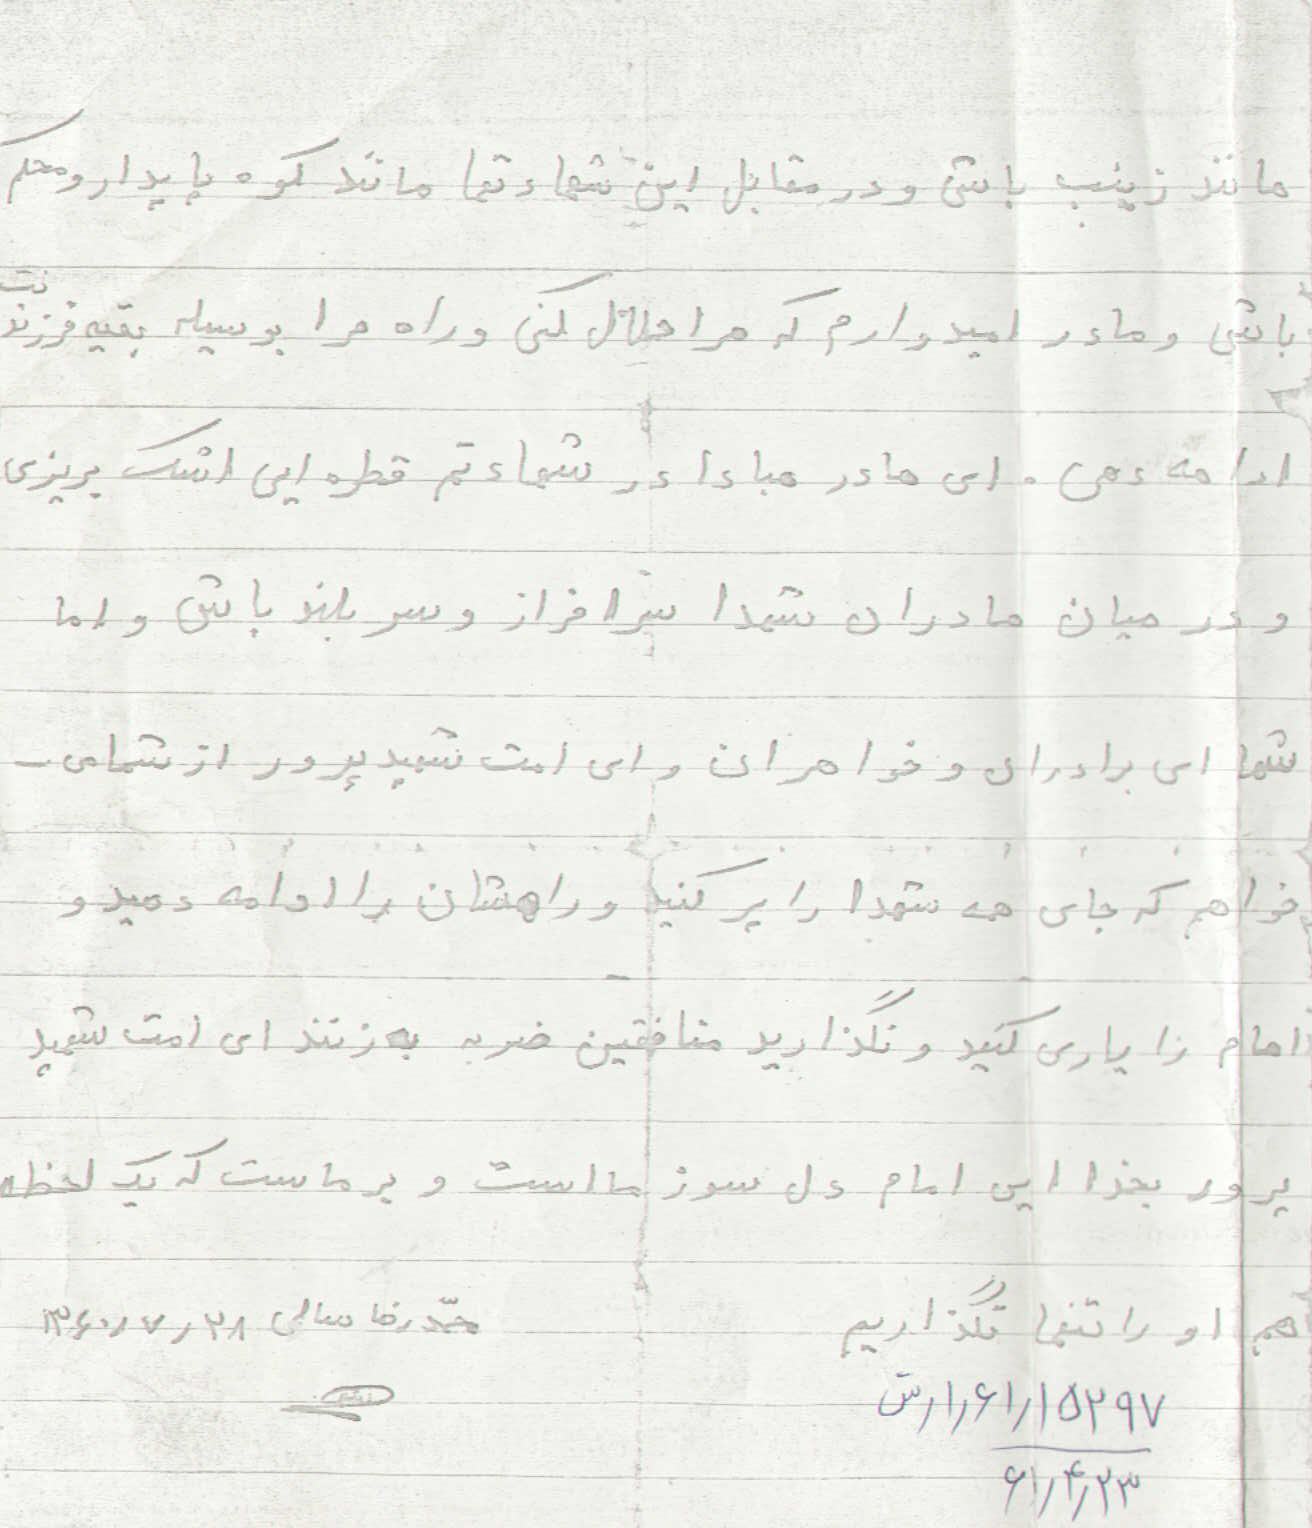 مانند زینب باشی و در مقابل این شهادتها مانند کوه پایدار و محکم
باشی و مادر امیدوارم که مرا حلال کنی و راه مرا بوسیله بقیه فرزندنت
ادامه دهی . ای مادر مبادا در شهادتم قطره ایی اشک بریزی
و در میان مادران شهدا سرافراز و سر بلند باشی و اما
شما ای برادران و خواهران و ای امت شهید پرور از شما می ـ
خواهم که جای همه شهدا را پر کنید و راهشان را ادامه دهید و
امام را یاری کنید و نگذارید منافقین ضربه به زنند ای امت شهید
پرور بخدا این امام دل سوز ما است و بر ماست که یک لحظه
هم او را تنها نگذاریم
محمدرضا سالمی ۲۸ ر ۷ ر ۱۳۶۰
۱۵۲۹۷ر۶۱ر۱رش
۶۱ر۴ر۲۳